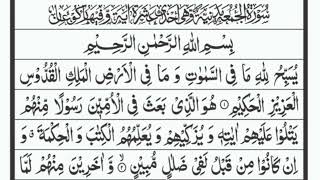 سُوْرَةُ الْجُمُعَةِ مَدَنِيَّةٌ وَّهِيَ اِحْدٰى عَشْرَةَ اٰيَةً وَّفِيْهَا رُكُوْعَانِ
بِسْمِ اللهِ الرَّحْمٰنِ الرَّحِيْمِ
يُسَبِّحُ لِلّٰهِ مَا فِى السَّمٰوٰتِ وَ مَا فِى الْاَرْضِ الْمَلِكِ الْقُدُّوْسِ
الْعَزِيْزِ الْحَكِيْمِ ۝۱ هُوَ الَّذِىْ بَعَثَ فِى الْاُمِّيّٖنَ رَسُوْلًا مِّنْهُمْ
يَتْلُوْا عَلَيْهِمْ اٰيٰتِهٖ وَ يُزَكِّيْهِمْ وَ يُعَلِّمُهُمُ الْكِتٰبَ وَ الْحِكْمَةَ ۗ وَ
اِنْ كَانُوْا مِنْ قَبْلُ لَفِىْ ضَلٰلٍ مُّبِيْنٍ ۝۲ وَّ اٰخَرِيْنَ مِنْهُمْ لَمَّا